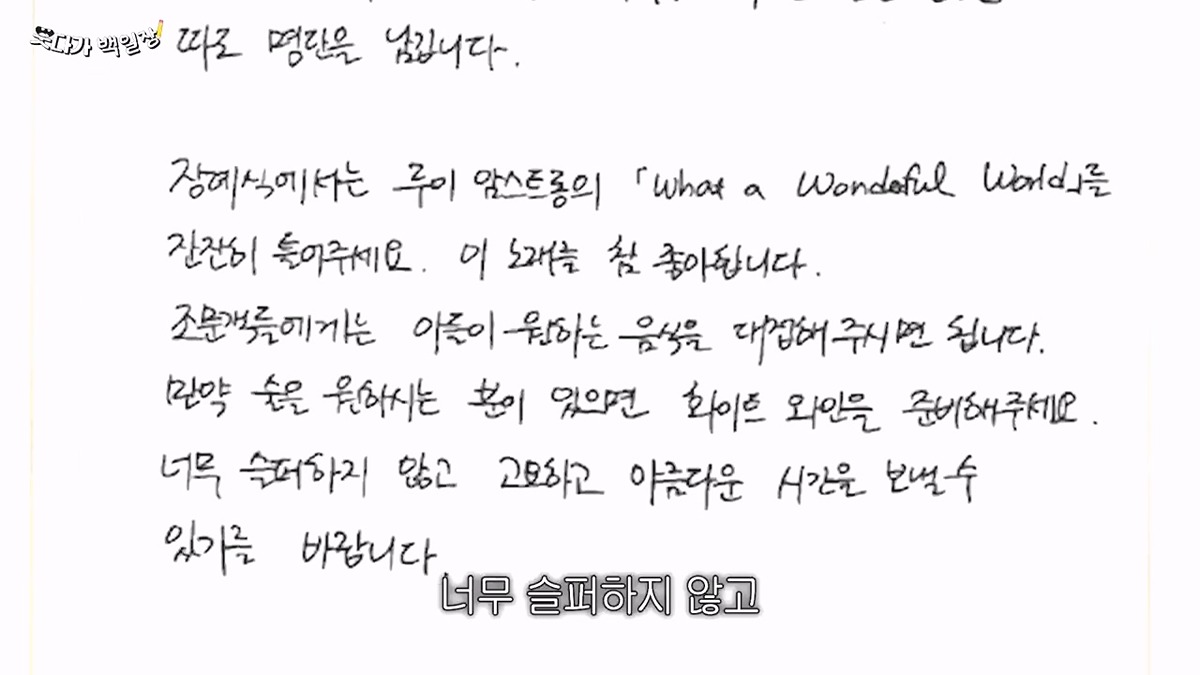 웃다가 백일장
따로 명단을 남깁니다.
장예식에서는 루이 암스트롱의 「What a Wondeful World」를
잔잔히 틀어주세요. 이 노래를 참 좋아합니다.
조문객들에게는 아들이 원하는 음식을 대접해 주시면 됩니다.
만약 술을 원하시는 분이 있으면 화이트 와인을 준비해주세요.
너무 슬퍼하지 않고 고요하고 아름다운 시간을 보낼 수
있기를 바랍니다.
너무 슬퍼하지 않고